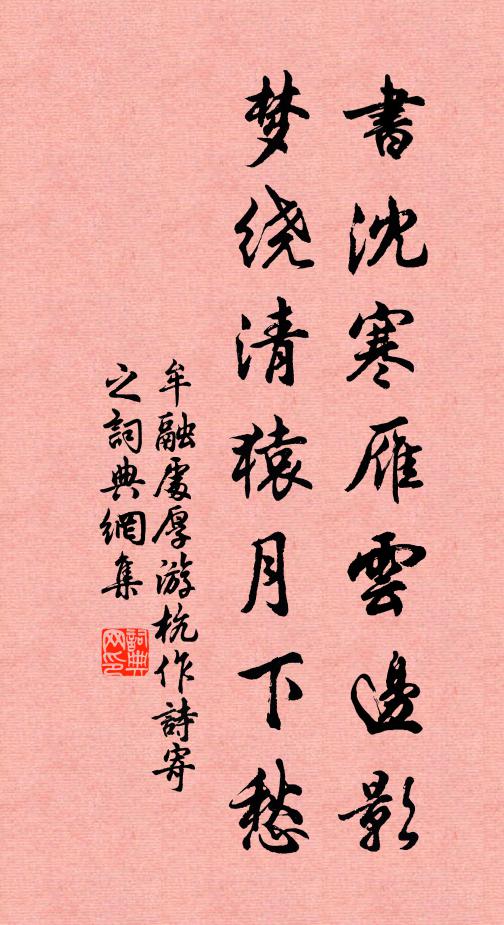 書沈寒雁雲邊影
梦绕清猿月下愁
牟融處厚游杭作詩寄
之詞典網集
詞典网印